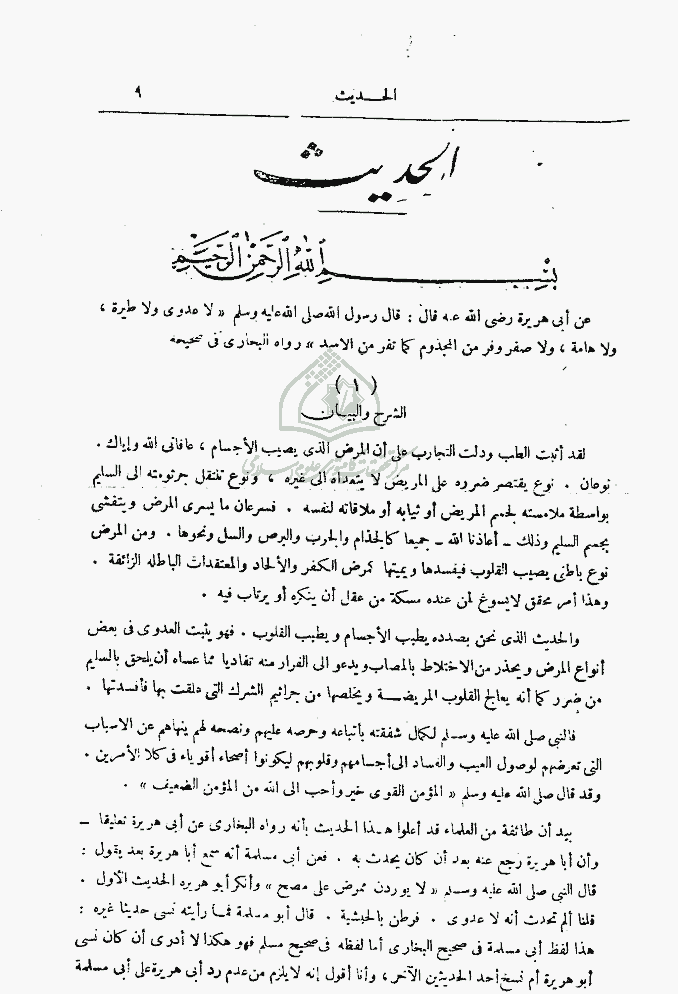 الحديث ٩
الحديث
بسم الله الرحمن الرحيم
عن أبى هريرة رضى الله عنه قال : قال رسول الله صلى الله عليه وسلم « لا عدوى ولا طيرة ،
ولا هامة ، ولا صفر وفر من المجذوم كما تفر من الاسد » رواه البخارى فى صحيحه
( ١ )
الشرح والبيان
لقد أثبت الطب ودلت التجارب على أن المرض الذى يصيب الأجسام ، عافانى الله وإياك .
نوعان . نوع يقتصر ضرره على المريض لا يتعداه الى غيره ، ونوع تنتقل جرثومته الى السليم
بواسطة ملامسته لجسم المريض أو ثيابه أو ملاقاته لنفسه . فسرعان ما يسرى المرض ويتفشى
بجسم السليم وذلك ــ أعاذنا الله ــ جميعا كالجذام والجرب والبرص والسل ونحوها . ومن المرض
نوع باطنى يصيب القلوب فيفسدها ويميتها كمرض الكفر والألحاد والمعتقدات الباطله الزائفة .
وهذا أمر محقق لايسوغ لمن عنده مسكة من عقل أن ينكره أو يرتاب فيه .
والحديث الذى نحن بصدده يطبب الأجسام ويطبب القلوب . فهو يثبت العدوى فى بعض
أنواع المرض ويحذر من الاختلاط بالمصاب ويدعو الى الفرار منه تفاديا مما عساه أن يلحق بالسليم
من ضرر كما أنه يعالج القلوب المريضة ويخلصها من جراثيم الشرك التى علقت بها فأفسدتها .
فالنبى صلى الله عليه وسلم لكمال شفقته بأتباعه وحرصه عليهم ونصحه لهم ينهاهم عن الاسباب
التى تعرضهم لوصول العيب والفساد الى أجسامهم وقلوبهم ليكونوا أصحاء أقوياء فى كلا الأمرين .
وقد قال صلى الله عليه وسلم « المؤمن القوى خير وأحب الى الله من المؤمن الضعيف » .
بيد أن طائفة من العلماء قد أعلوا هذا الحديث بأنه رواه البخارى عن أبى هريرة تعليقا ــ
وأن أبا هريرة رجع عنه بعد أن كان يحدث به . فعن أبى مسلمة أنه سمع أبا هريرة بعد يقول :
قال النبى صلى الله عليه وسلم « لا يوردن ممرض على مصح » وأنكر أبو هريره الحديث الأول .
قلنا ألم تحدث أنه لا عدوى . فرطن بالحبشية . قال أبو مسلمة فما رأيته نسى حديثا غيره :
هذا لفظ أبى مسلمة فى صحيح البخارى أما لفظه فى صحيح مسلم فهو هكذا لا أدرى أن كان نسى
أبو هريرة أم نسخ أحد الحديثين الآخر ، وأنا أقول إنه لا يلزم من عدم رد أبى هريرة على أبى مسلمة